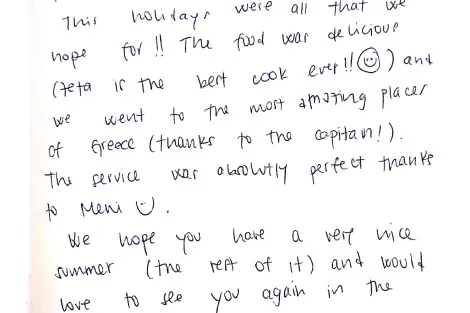 This holidays were all that we
hope for!! The food was delicious
(Zeta is the best cook ever!!☺) and
we went to the most amazing places
of Greece (thanks to the capitan!).
The service was absolutly perfect thanks
to Meni ☺.
We hope you have a very nice
summer (the rest of it) and would
love to see you again in the